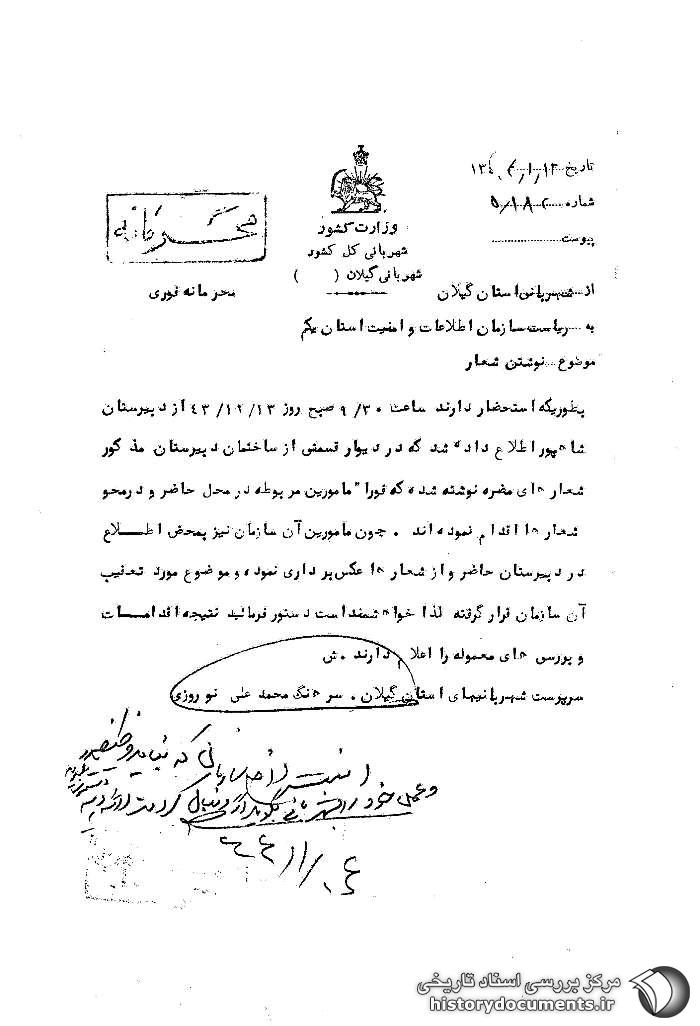 تاریخ
شماره
پیوست
محرمانه
وزارت کشور
شهربانی کل کشور
شهربانی گیلان ( )
محرمانه فوری
از شهربانی استان گیلان
به ریاست سازمان اطلاعات و امنیت استان یکم
موضوع نوشتن شعار
بطوریکه استحضار دارند ساعت ۹/۳۰ صبح روز ۴۳/۱۲/۱۳ از دبیرستان
شاهپور اطلاع داده شد که در دیوار قسمتی از ساختمان دبیرستان مذکور
شعارهای مضره نوشته شده که فورا" مامورین مربوطه در محل حاضر و در محو
شعارها اقدام نموده اند . چون مامورین آن سازمان نیز بمحض اطلاع
در دبیرستان حاضر و از شعارها عکس برداری نموده و موضوع مورد تعقیب
آن سازمان قرار گرفته لذا خواهشمند است دستور فرمائید نتیجه اقدامات
و بررسی های معموله را اعلام دارند . ش
سرپرست شهربانیهای استان گیلان . سرهنگ محمد علی نوروزی
که
و عمل خود را
مرکز بررسی اسناد تاریخی
historydocuments.ir